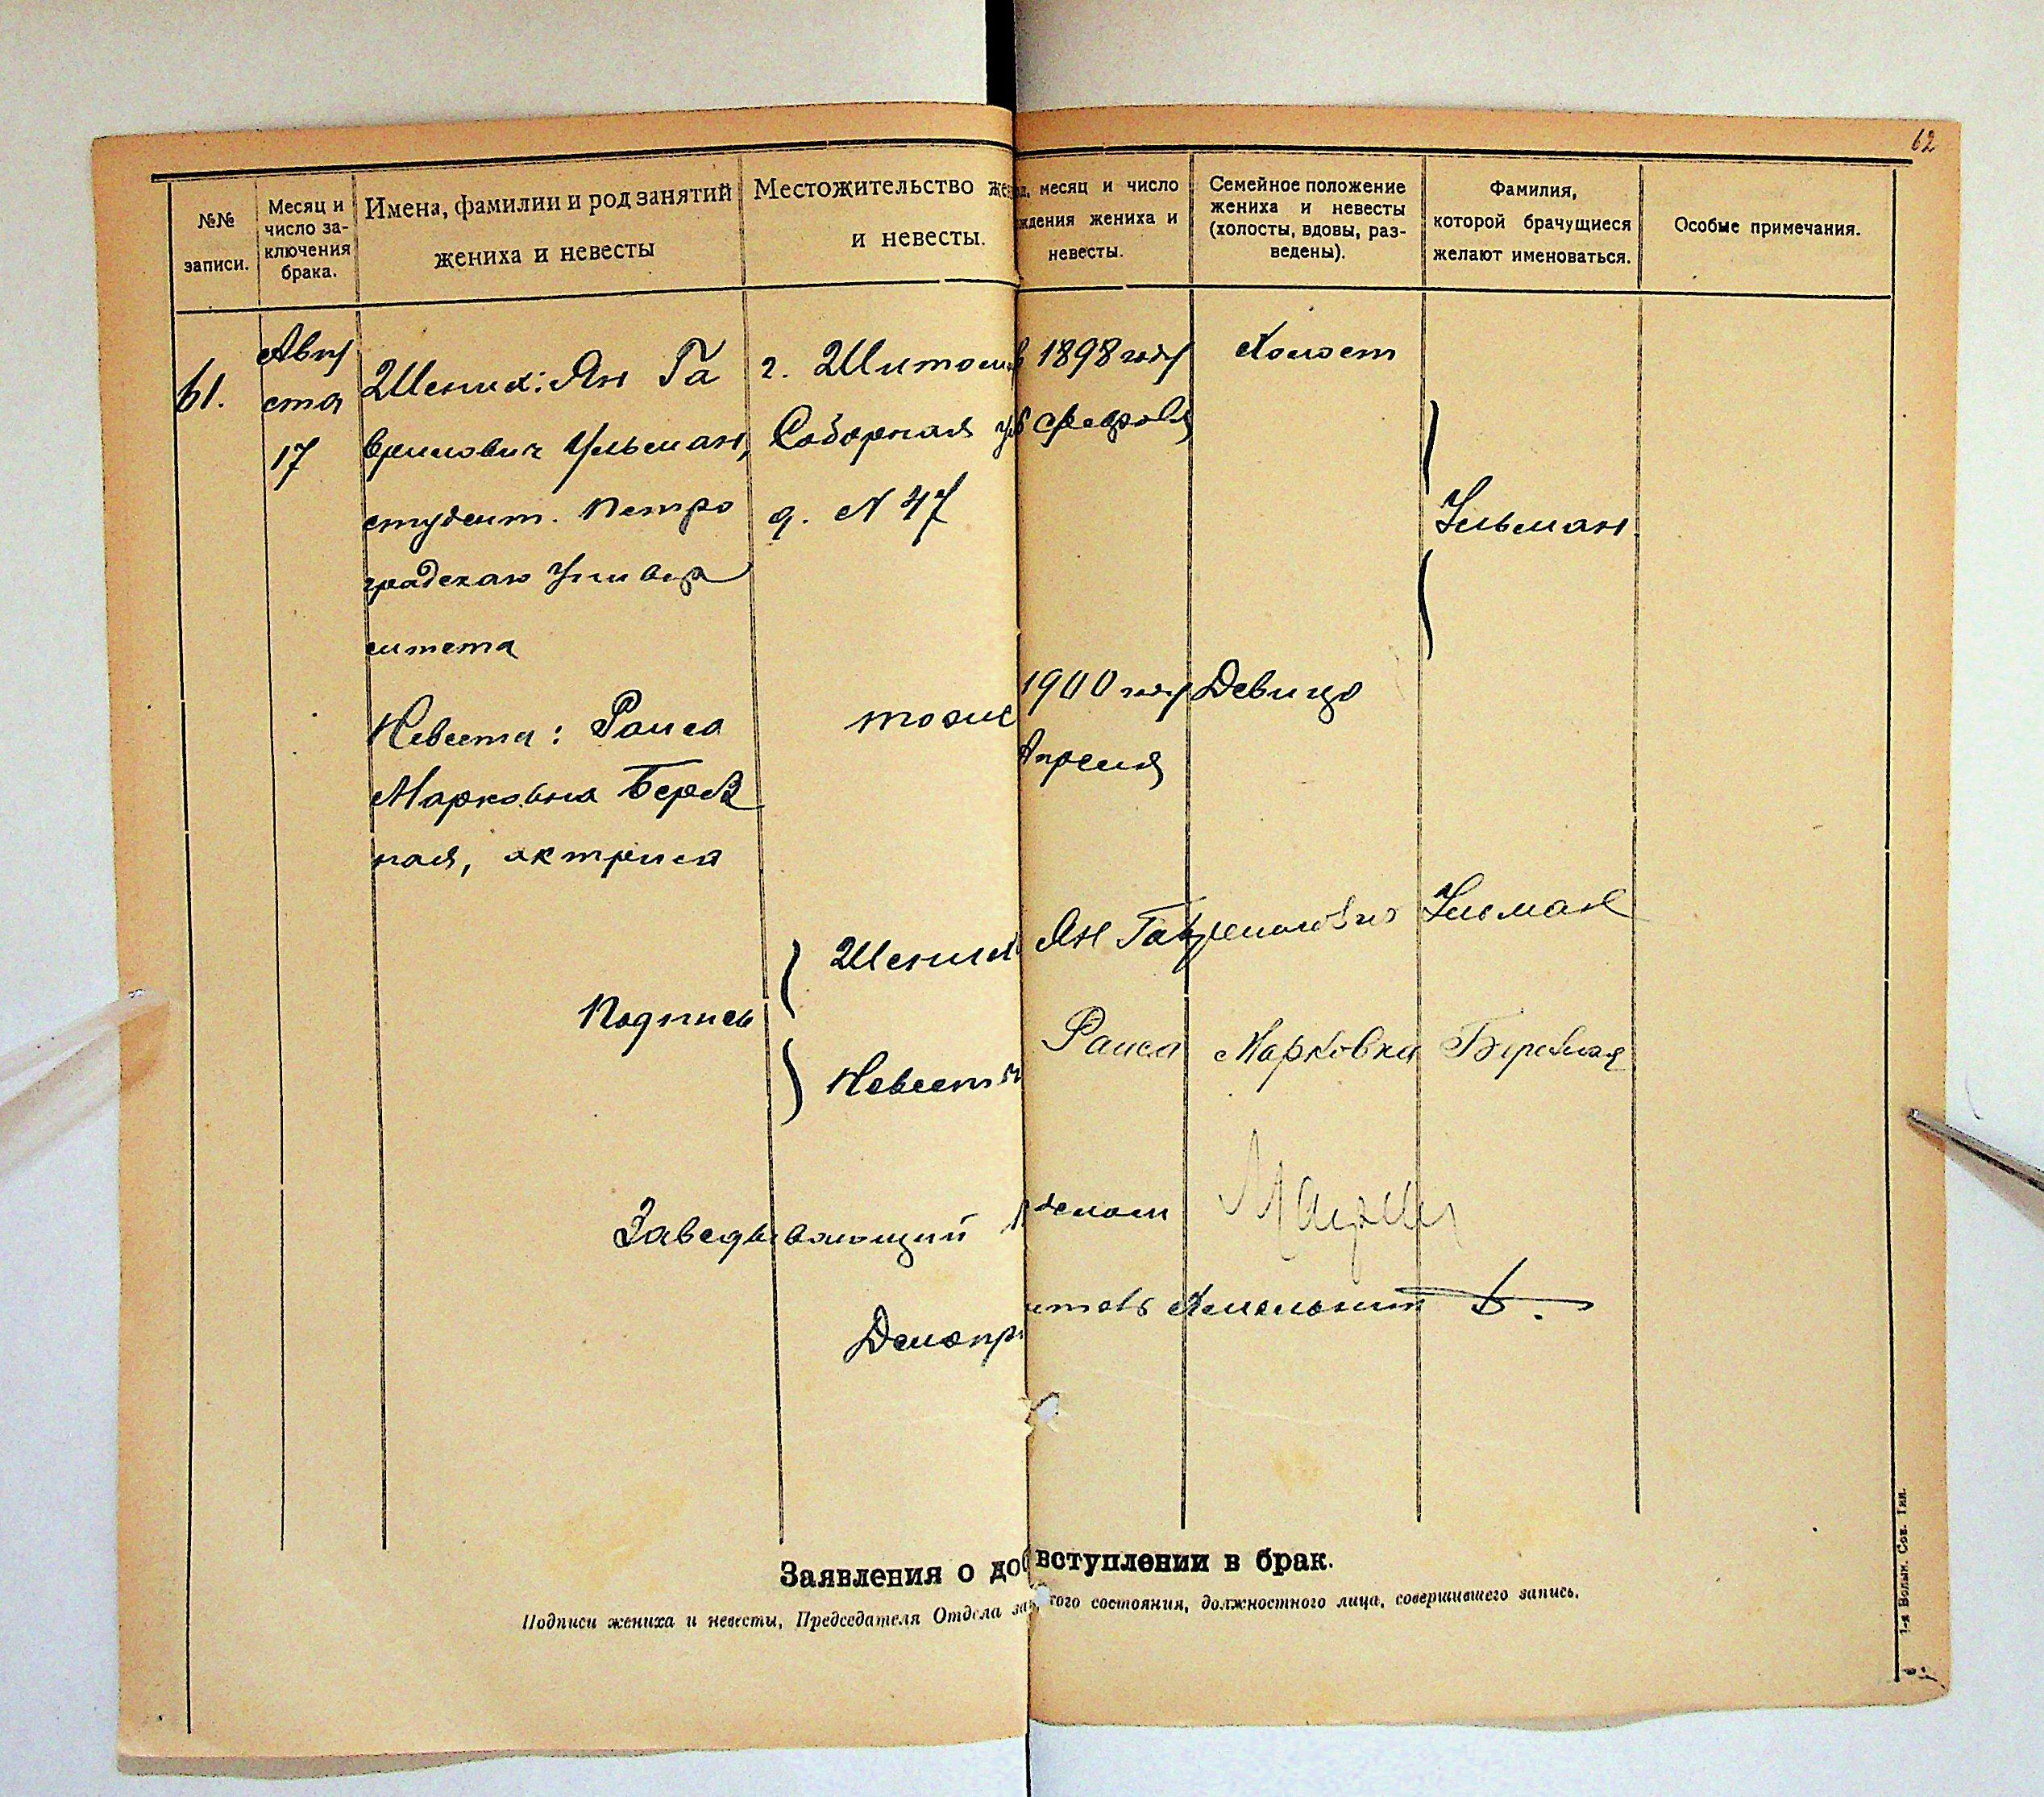 62
№№ записи.
Месяц и число заключения брака.
Имена, фамилии и род занятий
жениха и невесты
Местожительство
и невесты.
месяц и число
ждения жениха и
невесты.
Семейное положение
жениха и невесты
(холосты, вдовы, раз-
ведены).
Фамилия,
которой брачущиеся
желают именоваться.
Особые примечания.
61.
Авгу
ста
17
Жених: Ян Га
врилович Ульман,
студент. Петро
градскаго Универ
ситета
г. Житомир
Соборная ул
д. N 47
1898 году
Февраля
Холост
Ульман.
Невеста: Раиса
Марковна Берез
ная, актриса
тоже
1900 году
Апреля
Девица
Подпись
Жених Ян Гаврилович Ульман
Невеста Раиса Марковна Березная
Заведывающий
делом
Делопр
Заявления о доб вступлении в брак.
Подписи жениха и невесты, Председателя Отдела зап того состояния, должностного лица, совершившего запись.
1-я Волын. Сов. Тип.